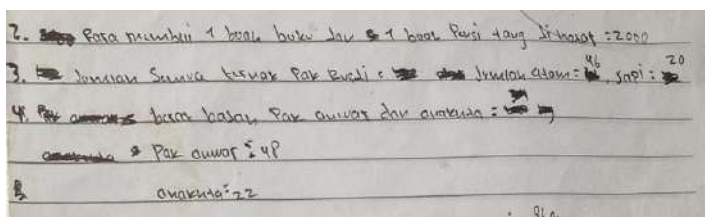 2. Rosa membeli 1 buah buku dan 1 buah Pensi yang di bayar : 2000
3. Jumlah Semua ternak Pak Budi : Jumlah ayam : 46 sapi : 20
4. berat badan Pak anwar dan anaknya :
Pak anwar : 48
anaknya : 22